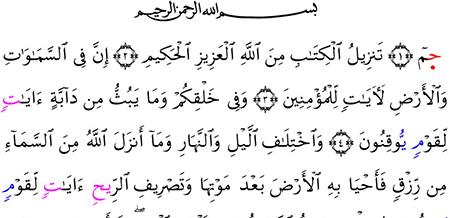 بسم الله الرحمن الرحيم
حمٓ ﴿١﴾ تَنزِيلُ ٱلْكِتَٰبِ مِنَ ٱللَّهِ ٱلْعَزِيزِ ٱلْحَكِيمِ ﴿٢﴾ إِنَّ فِى ٱلسَّمَٰوَٰتِ
وَٱلْأَرْضِ لَءَايَٰتٍ لِّلْمُؤْمِنِينَ ﴿٣﴾ وَفِى خَلْقِكُمْ وَمَا يَبُثُّ مِن دَآبَّةٍ ءَايَٰتٌ
لِّقَوْمٍ يُوقِنُونَ ﴿٤﴾ وَٱخْتِلَٰفِ ٱلَّيْلِ وَٱلنَّهَارِ وَمَآ أَنزَلَ ٱللَّهُ مِنَ ٱلسَّمَآءِ
مِن رِّزْقٍ فَأَحْيَا بِهِ ٱلْأَرْضَ بَعْدَ مَوْتِهَا وَتَصْرِيفِ ٱلرِّيَٰحِ ءَايَٰتٌ لِّقَوْمٍ